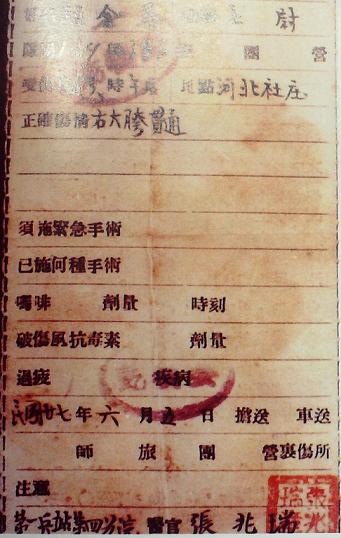 尉
團 營
受傷 時 地點河北社庄
正確傷情右大胯貫通
須施緊急手術
已施何種手術
嗎啡 劑量 時刻
破傷風抗毒素 劑量
過疲 疾病
民國廿七年六月五日 擔送 車送
師 旅 團 營裹傷所
注意
第一兵站第四分院 醫官 張兆瑞